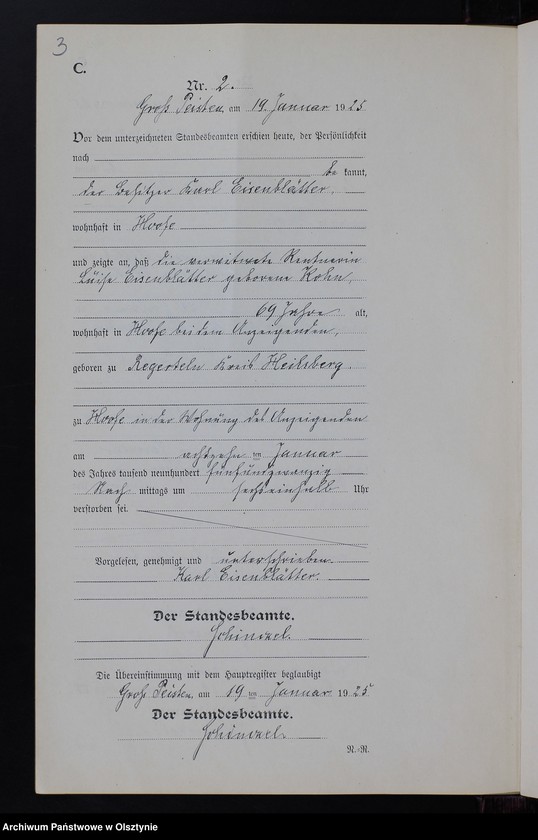 3
C.
Nr. 2.
Groß Peisten, am 19. Januar 1925
Vor dem unterzeichneten Standesbeamten erschien heute, der Persönlichkeit
nach
be kannt,
der Besitzer Karl Eisenblätter,
wohnhaft in Hoofe
und zeigte an, daß die verwitwete Rentnerin
Luise Eisenblätter geborene Kohn,
69 Jahre alt,
wohnhaft in Hoofe bei dem Anzeigenden,
geboren zu Regerteln Kreis Heilsberg,
zu Hoofe in der Wohnung des Anzeigenden
am achtzehn ten Januar
des Jahres tausend neunhundert fünfundzwanzig
Nach mittags um sechseinhalb Uhr
verstorben sei.
Vorgelesen, genehmigt und unterschrieben.
Karl Eisenblätter.
Der Standesbeamte.
Die Übereinstimmung mit dem Hauptregister beglaubigt
Groß Peisten, am 19 ten Januar 1925
Der Standesbeamte.
N.-R.
Archiwum Państwowe w Olsztynie